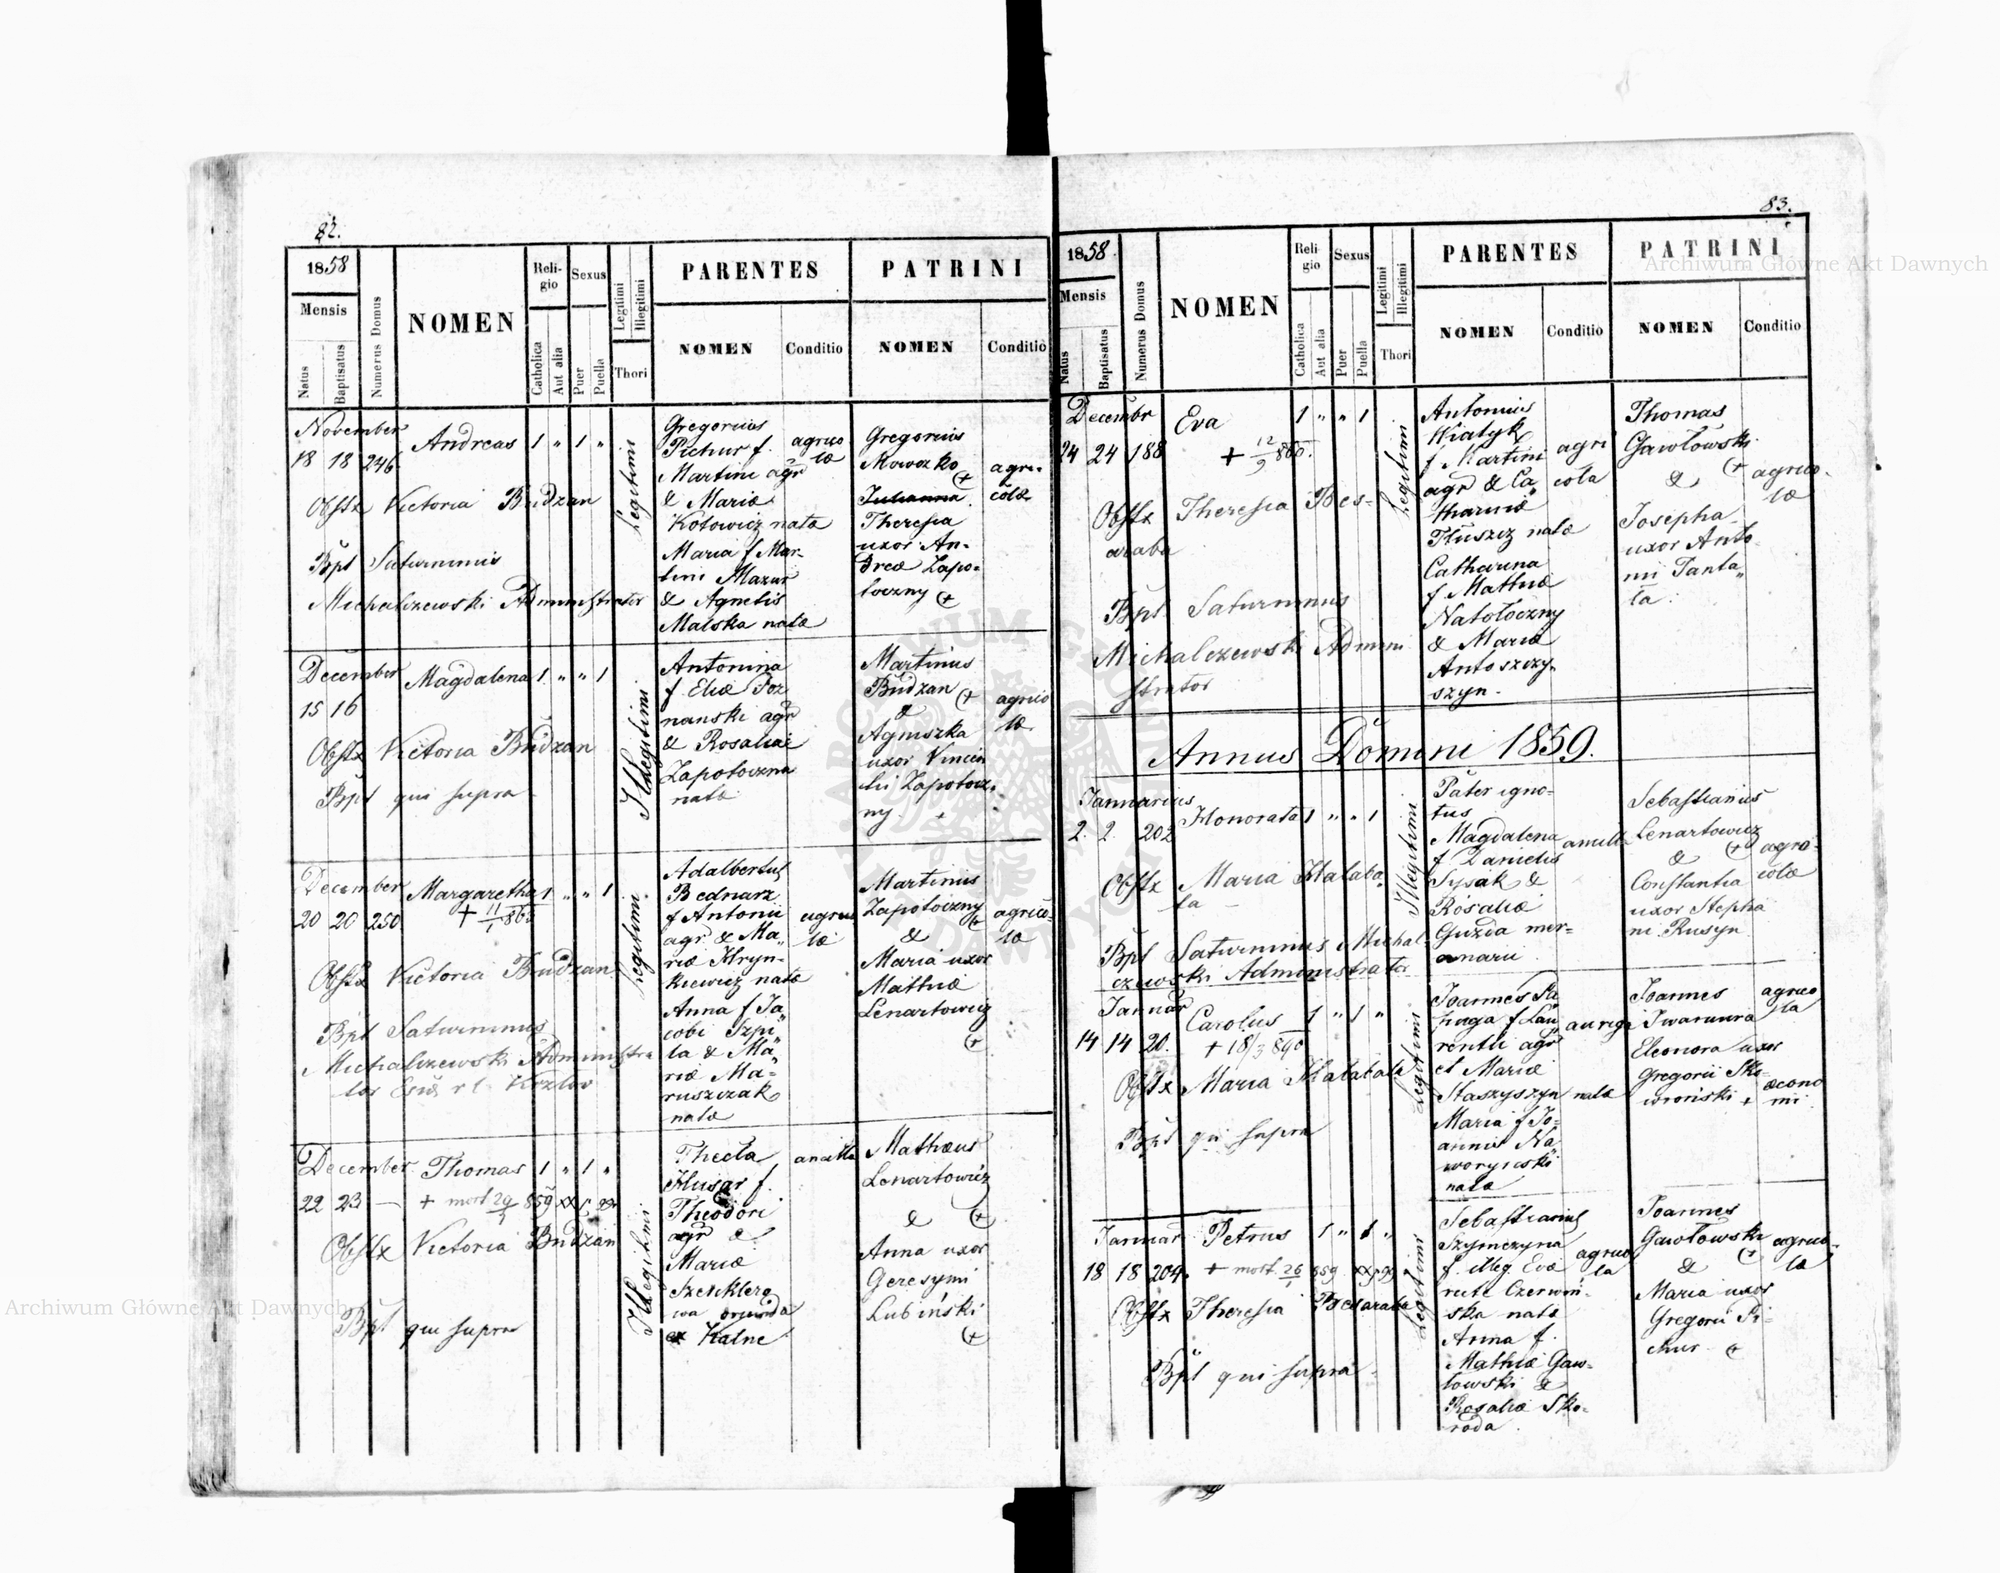 82.
1858
Mensis
Natus
Baptisatus
Numerus Domus
NOMEN
Religio
Catholica
Aut alia
Sexus
Puer
Puella
Legitimi
Illegitimi
Thori
PARENTES
NOMEN
Conditio
PATRINI
NOMEN
Conditio
November
18 18 246
Andreas 1 " 1 "
Obstx Victoria Budzan
Bpt Saturninus
Michalczewski Administrator
Legitimi
Gregorius
Pichur f.
Martini agr
& Mariæ
Kotowicz nata
Maria f Mar-
tini Mazur
& Agnetis
Malska natæ
agrico
læ
Gregorius
Mowczko
Julianna
Theresia
uxor An-
dreæ Zapo-
toczny
agri-
colæ
December
15 16
Magdalena 1 " " 1
Obstx Victoria Budzan
Bpt qui supra
Illegitimi
Antonina
f. Eliæ Poz
nanski agr
& Rosaliæ
Zapotoczna
natæ
Martinus
Budzan
&
Agniszka
uxor Vincen
tii Zapotocz-
ny
agrico
læ
December
20 20 250
Margaretha 1 " " 1
+ 11/1 865
Obstx Victoria Budzan
Bpt Saturninus
Michalczewski Administra
tor
Legitimi
Adalbertus
Bednarz
f Antonii
agr. & Ma-
riæ Hryn-
kiewicz natæ
Anna f Ja
cobi Szpi
la & Ma
riæ Ma-
ruszczak
natæ
agrico
læ
Martinus
Zapotoczny
&
Maria uxor
Mathiæ
Lenartowicz
agrico-
læ
December
22 23 —
Thomas 1 " 1 "
+ mort 29/1 859
Obstx Victoria Budzan
Bpt qui supra
Illegitimi
Thecla
Husar f.
Theodori
agr &
Mariæ
Szenklero
wa oriunda
ex Kalne
ancilla
Mathæus
Lenartowicz
&
Anna uxor
Geresymi
Lubiński
83.
1858.
Mensis
Natus
Baptisatus
Numerus Domus
NOMEN
Religio
Catholica
Aut alia
Sexus
Puer
Puella
Legitimi
Illegitimi
Thori
PARENTES
NOMEN
Conditio
PATRINI
NOMEN
Conditio
Decembr
24 24 188
Eva 1 " " 1
+ 12/9 860.
Obstx Theresia Bes-
araba
Bpt. Saturninus
Michalczewski Admini
strator
Legitimi
Antonius
Wiatyk
f Martini
agr & Ca
tharinæ
Tłuszcz natæ
Catharina
f Mathiæ
Natołoczny
& Mariæ
Antoszczy-
szyn.
agri
cola
Thomas
Gawłowski
&
Josepha
uxor Anto-
nii Panta
la.
agrico-
læ
Annus Domini 1859.
Januarius
2. 2. 202
Honorata 1 " " 1
Obstx Maria Hałaba-
ła
Bpt Saturninus Michal-
czewski Administrator
Illegitimi
Pater igno-
tus
Magdalena
f Danielis
Sysak &
Rosaliæ
Guzda mer-
cenarii
ancilla
Sebastianus
Lenartowicz
&
Constantia
uxor Stepha
ni Rusyn
agri-
colæ
Januar
14 14 20.
Carolus 1 " 1 "
+ 18/3 890
Obstx Maria Hałabała
Bpt qui supra
Legitimi
Joannes Pa
f Lau
rentii agr
et Mariæ
Staszyszyn natæ
Maria f Jo-
annis Na
woryiwski
natæ
auriga
Joannes
Iwaniura
Eleonora uxor
Gregorii Sko-
wroński +
agrico
la
œcono
mi
Januar
18 18 204.
Petrus 1 " 1 "
+ mort. 26/1 859
Obstx Theresia Besaraba
Bpt qui supra
Legitimi
Sebastianus
Szymczyna
f. illeg. Evæ
recte Czerwin-
ska natæ
Anna f.
Mathiæ Gaw-
łowski &
Rosaliæ Sko-
roda
agrico
la
Joannes
Gawłowski
&
Maria uxor
Gregorii Pi-
chur
agrico-
læ
Archiwum Główne Akt Dawnych
Archiwum Główne Akt Dawnych
ARCHIWUM GŁÓWNE AKT DAWNYCH